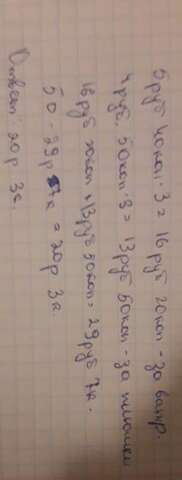 5 руб 40коп · 3 = 16 руб 20коп - за ватр.
4 руб. 50коп · 3 = 13 руб 50коп - за
16 руб 20коп + 13 руб 50коп = 29 руб 7к.
50 - 29р 7к = 20р 3к
Ответ: 20р 3к.